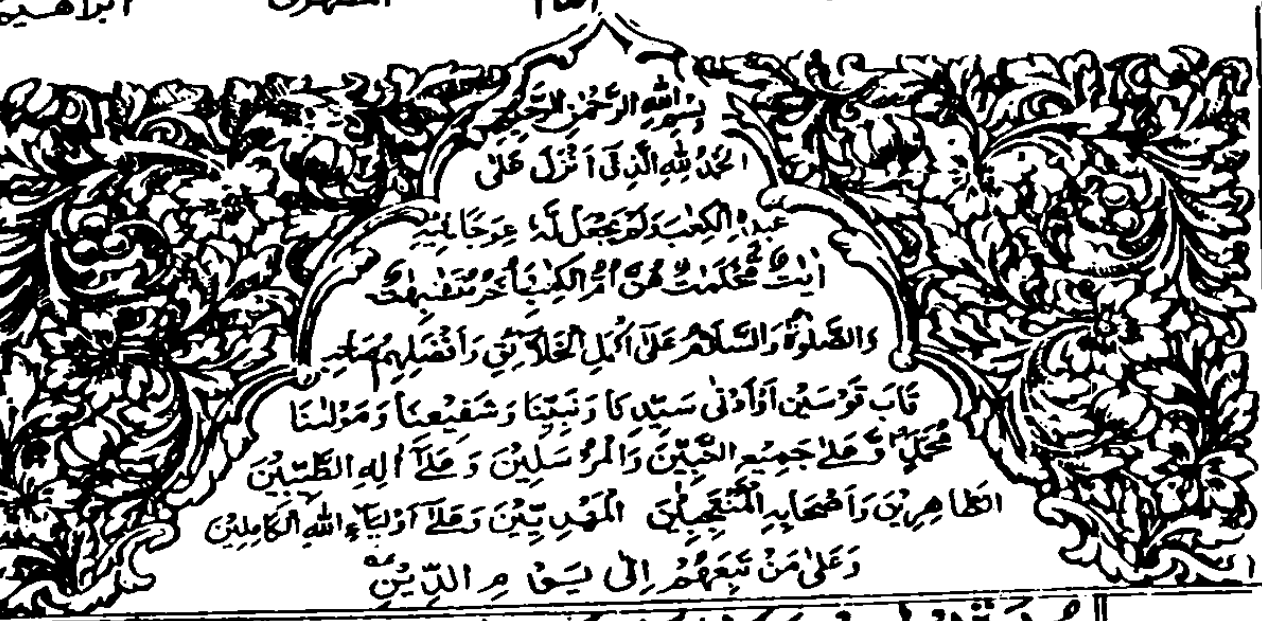 بِسْمِ اللهِ الرَّحْمٰنِ الرَّحِيْمِ
الْحَمْدُ لِلهِ الَّذِيْ اَنْزَلَ عَلٰى
عَبْدِهِ الْكِتٰبَ وَلَمْ يَجْعَلْ لَّهٗ عِوَجًا فِيْهِ
اٰيٰتٌ مُّحْكَمٰتٌ هُنَّ اُمُّ الْكِتٰبِ وَاُخَرُ مُتَشٰبِهٰتٌ
وَالصَّلٰوةُ وَالسَّلَامُ عَلٰى اَكْمَلِ الْخَلَآئِقِ وَاَفْضَلِهِمْ صَاحِبِ
قَابَ قَوْسَيْنِ اَوْ اَدْنٰى سَيِّدِنَا وَنَبِيِّنَا وَشَفِيْعِنَا وَمَوْلٰىنَا
مُحَمَّدٍ وَّعَلٰى جَمِيْعِ النَّبِيِّيْنَ وَالْمُرْسَلِيْنَ وَعَلٰٓى اٰلِهِ الطَّيِّبِيْنَ
الطَّاهِرِيْنَ وَاَصْحَابِهِ الْمُنْتَجَبِيْنَ الْمَهْدِيِّيْنَ وَعَلٰٓى اَوْلِيَآءِ اللهِ الْكَامِلِيْنَ
وَعَلٰى مَنْ تَبِعَهُمْ اِلٰى يَوْمِ الدِّيْنِ